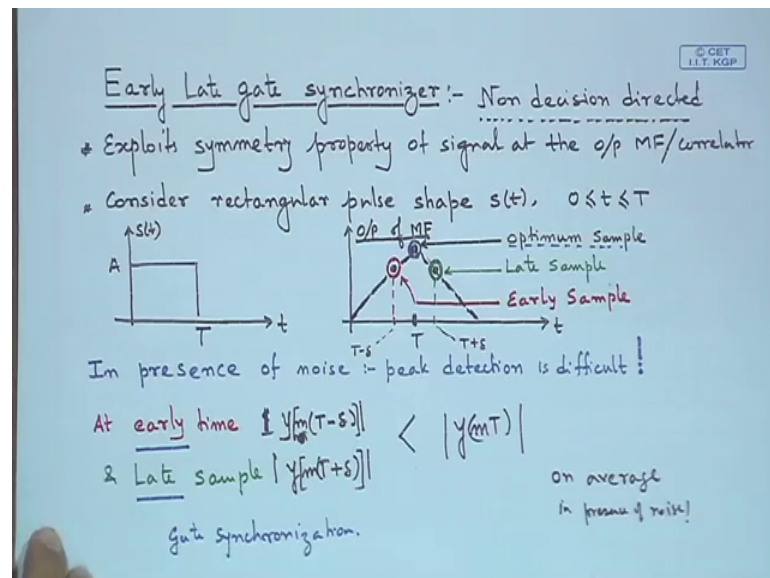 © CET
I.I.T. KGP
Early Late gate synchronizer:- Non decision directed
* Exploits symmetry property of signal at the o/p MF/correlator
* Consider rectangular pulse shape s(t), 0 ≤ t ≤ T
s(t)
A
T
t
o/p of MF
optimum sample
Late sample
Early Sample
T-δ
T
T+δ
t
In presence of noise :- peak detection is difficult!
At early time |y[m(T-δ)]| < |y(mT)|
& Late sample |y[m(T+δ)]|
on average
in presence of noise!
Gate synchronization.